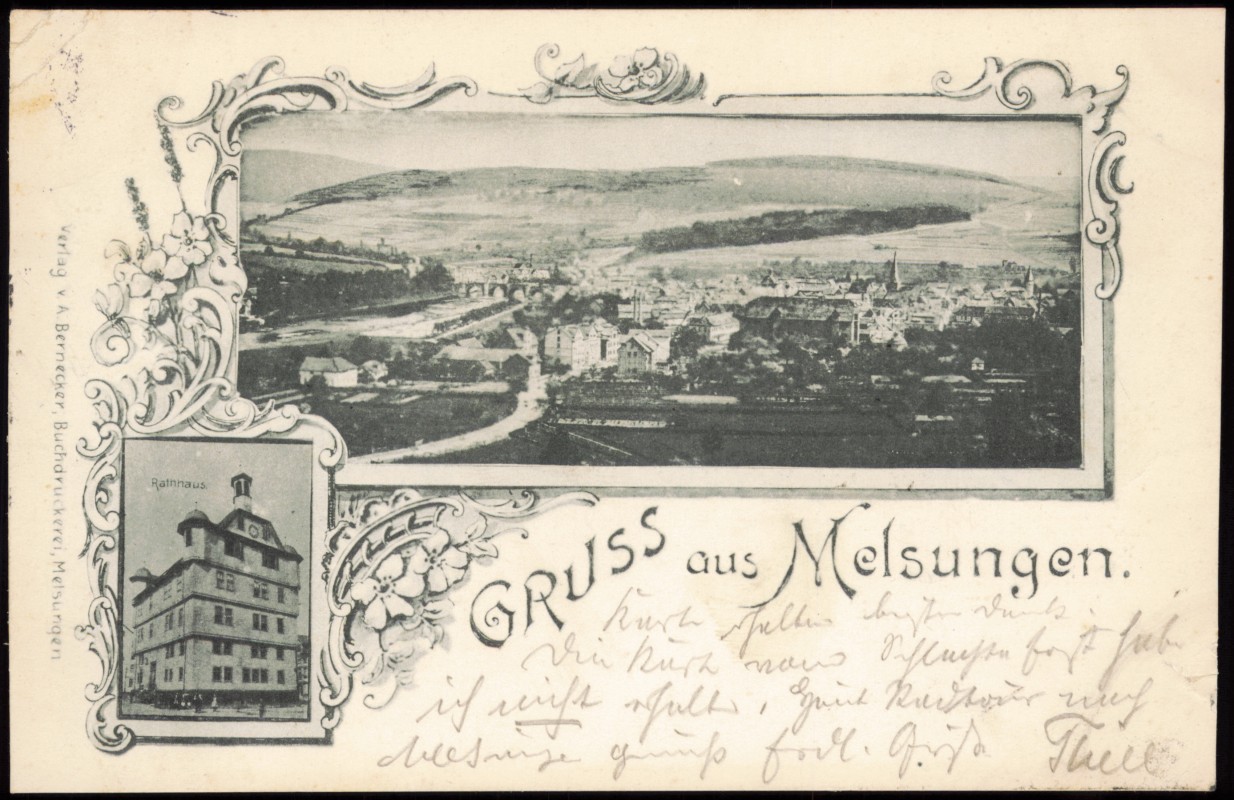 Verlag v. A. Bernecker, Buchdruckerei, Melsungen
Rathhaus.
GRUSS aus Melsungen.
Karte erhalten besten Dank.
Die Karte vom habe
ich nicht erhalten, Heut Radtour nach
Melsungen gemacht frdl. Grüße